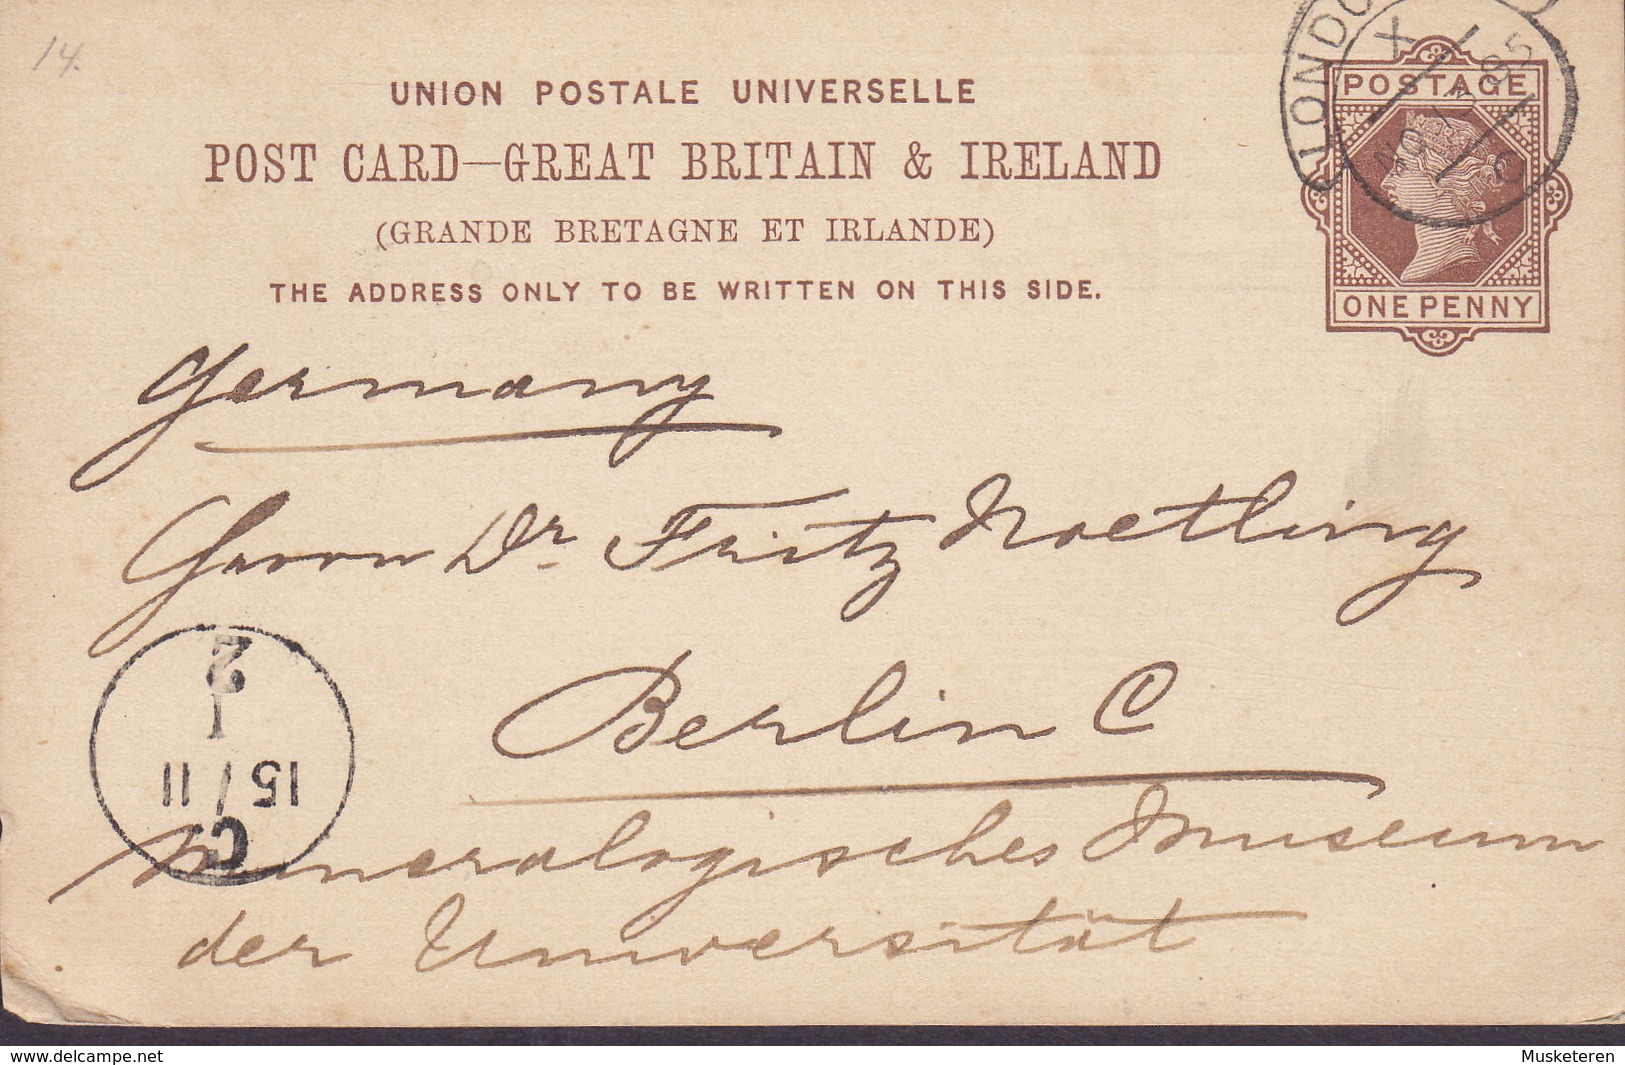 14.
UNION POSTALE UNIVERSELLE
POST CARD—GREAT BRITAIN & IRELAND
(GRANDE BRETAGNE ET IRLANDE)
THE ADDRESS ONLY TO BE WRITTEN ON THIS SIDE.
POSTAGE
ONE PENNY
LONDON
X
NO 13 85
Germany
Herrn Dr. Fritz Noetling
Berlin C
Mineralogisches Museum
der Universität
C.
15 / 11
1
2
www.delcampe.net
Musketeren